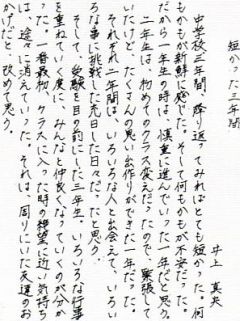 短かった三年間
井上真央
中学校三年間、降り返ってみればとても短かった。何
もかもが新鮮に感じた。そして何もかもが不安だった。
だから一年生の時は、慎重に進んでいった一年だと思う。
二年生は、初めてのクラス変えだったので、緊張して
いたけど、たくさんの思い出作りができた一年だった。
それぞれ二年間は、いろいろな人と出会えて、いろい
ろな事に挑戦した充日した日々だったと思う。
そして、受験を目前にした三年生、いろいろな行事
を重ねていく度に、みんなと仲良くなっていくのが分か
った。一番最初、クラスに入った時の絶望に近い気持ち
は、途々に消えていった。それは、周りにいた友達のお
かげだと、改めて思う。